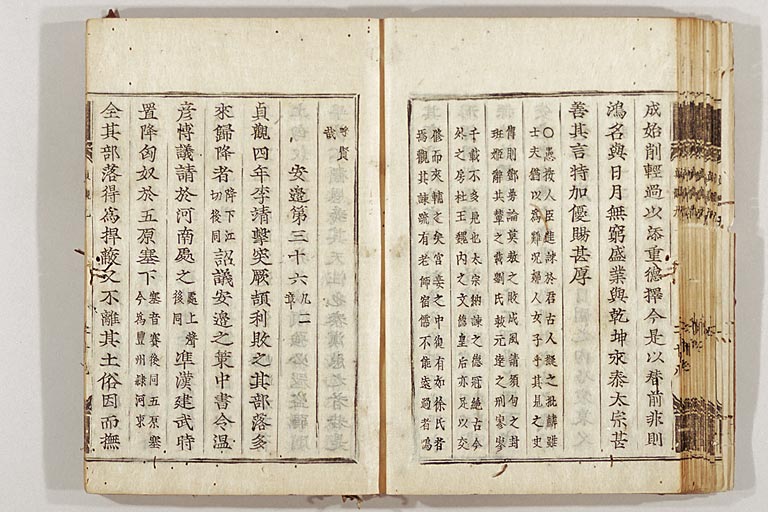 成始削輕過以添重德擇今是以替前非則
鴻名與日月無窮盛業與乾坤永泰太宗甚
善其言特加優賜甚厚
○愚按人臣進諫於君古人擬之批鱗雖
士夫猶以爲難况婦人女子乎其見之史
傳則鄧曼論莫敖之敗成風請須句之封
班姬辭共輦之 劉氏救元達之刑寥寥
千載不多見也太宗納諫之德冠絶古今
外之房杜王魏内之文德皇后亦足以交
儆而夾輔之矣宮妾之中復有如徐氏者
焉觀其諫疏有老師宿儒不能遠過者嗚
呼賢
哉
安邊第三十六凡二章
貞觀四年李靖擊突厥頡利敗之其部落多
來歸降者降下江切後同詔議安邊之策中書令溫
彦博議請於河南處之處上聲後同準漢建武時
置降匈奴於五原塞下塞音賽後同五原塞今爲豐州隸河東
全其部落得爲捍蔽又不離其土俗因而撫